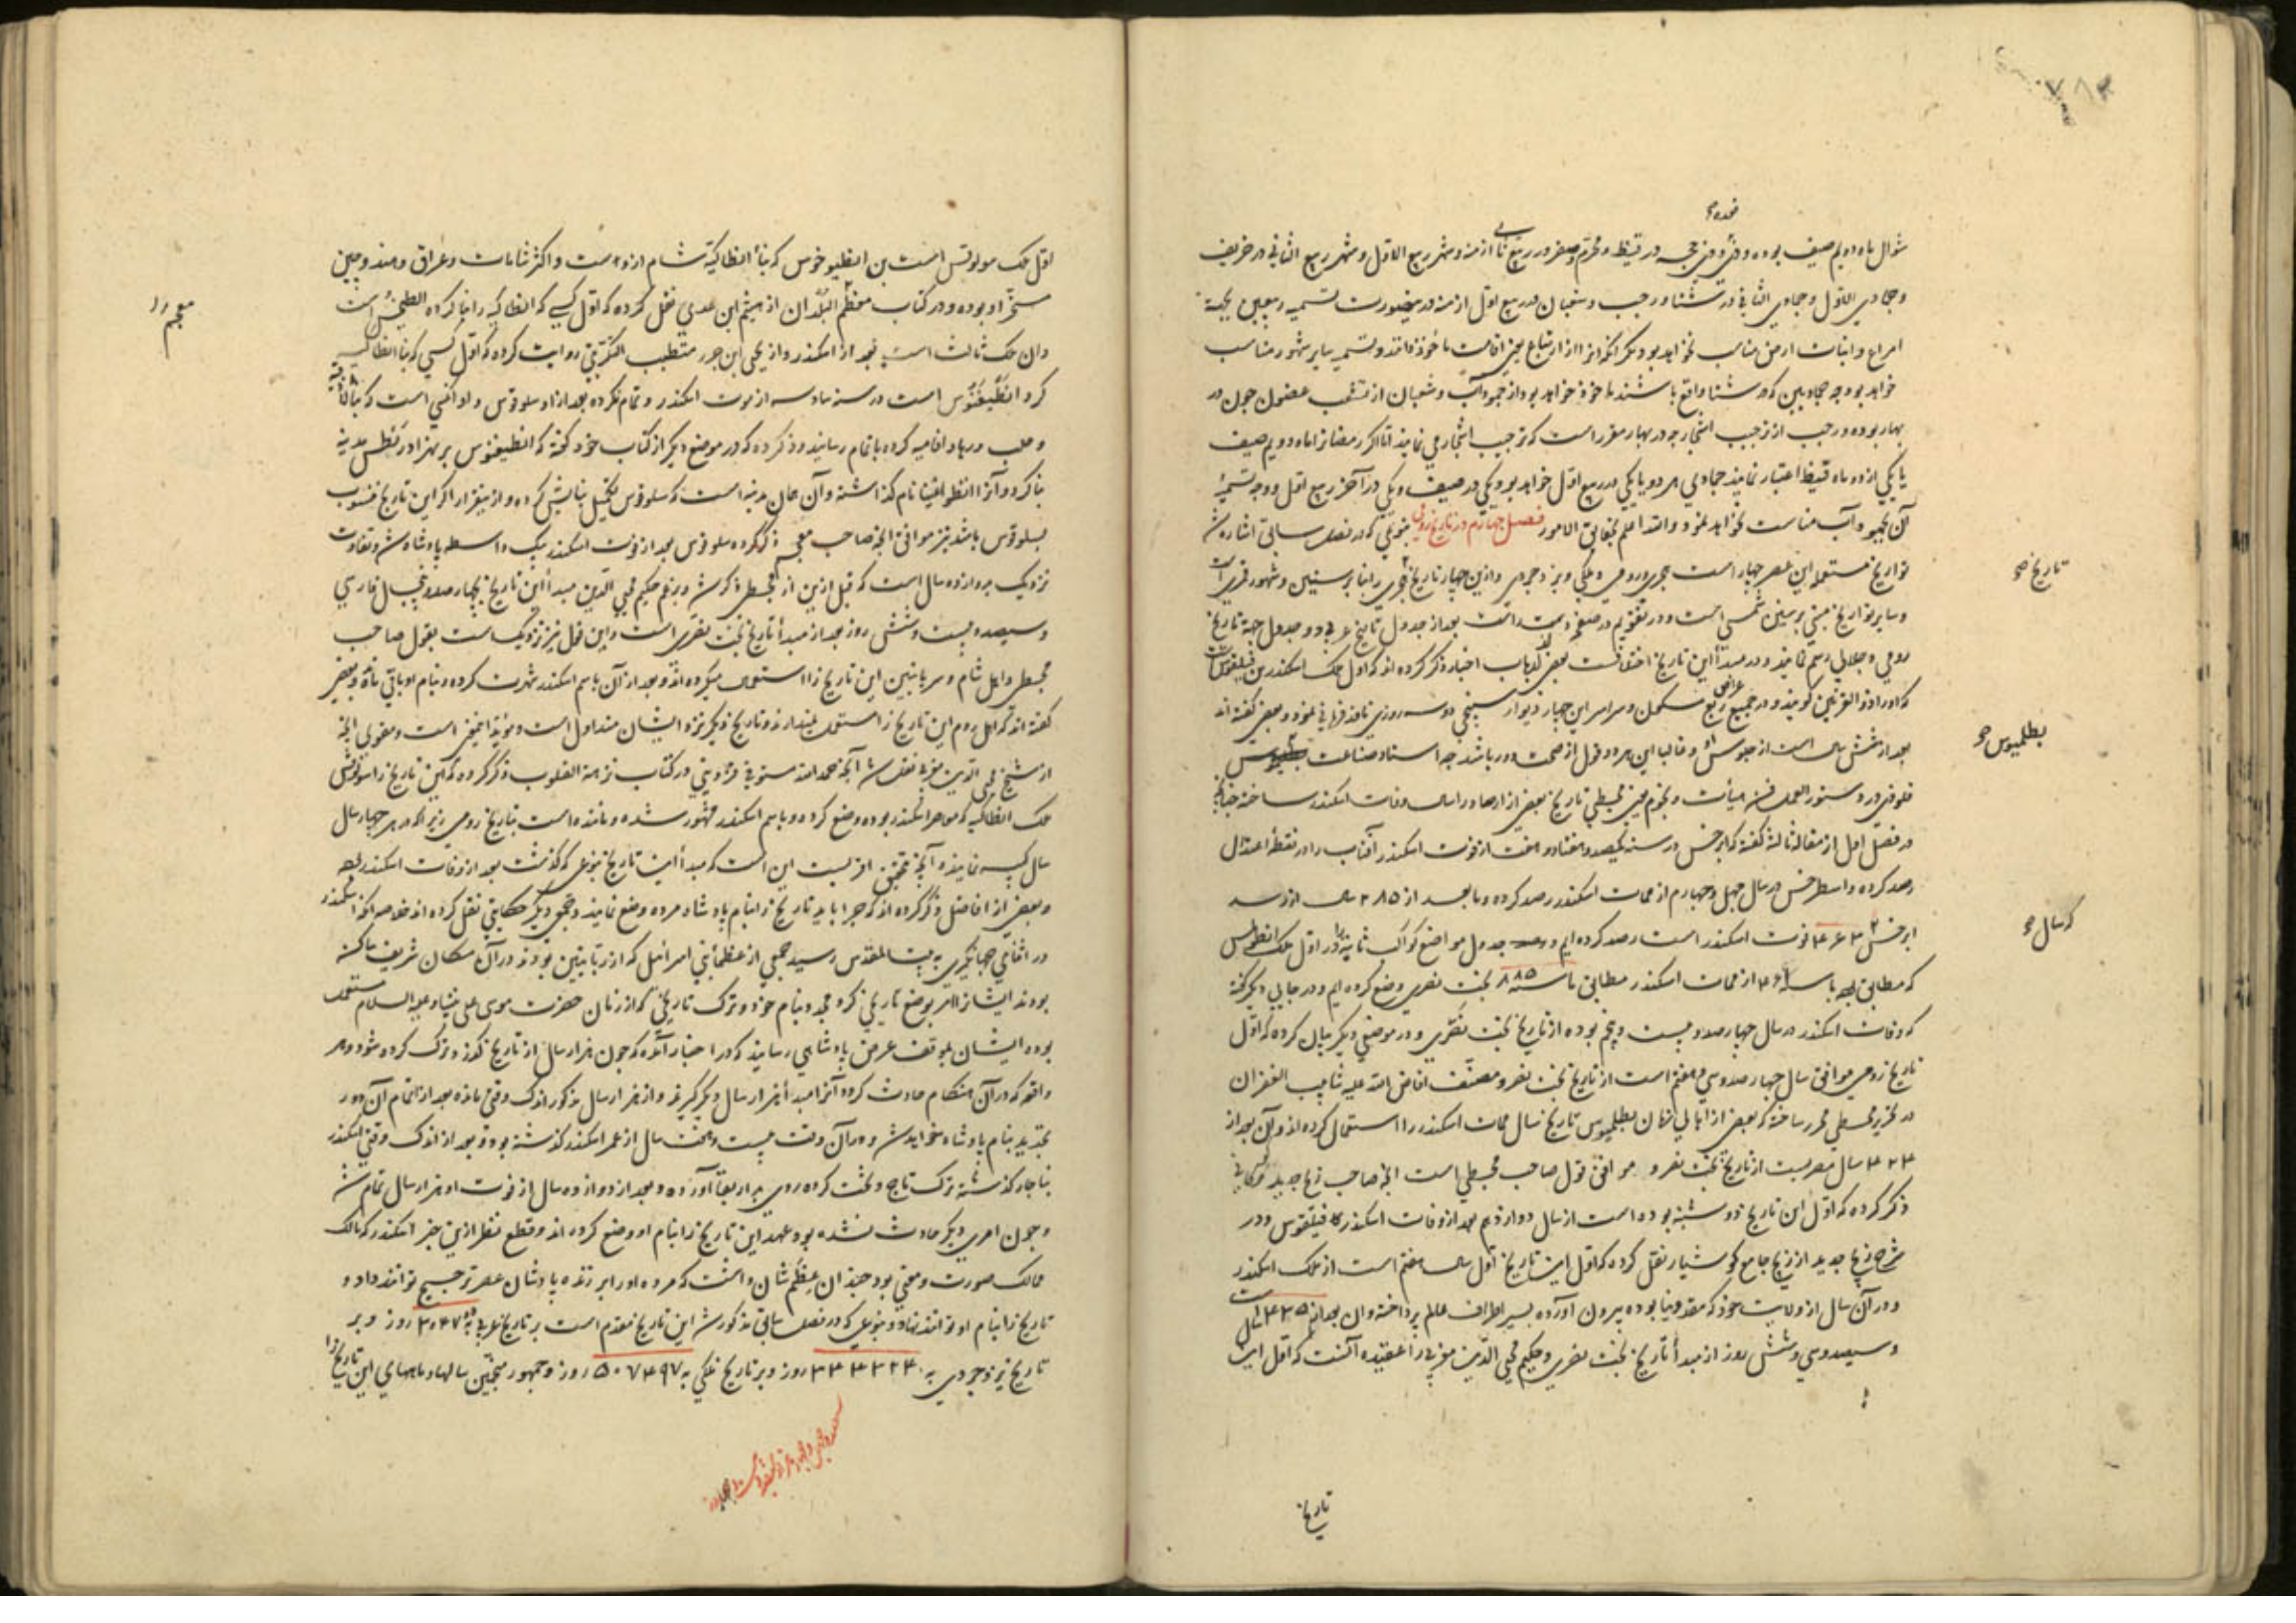 شوال ماه دویم صیف بوده و
و جمادی الاول و جمادی الثانی در شتا و رجب و شعبان در ربیع اول ازمنه
خواهد بود چه جمادیین که در شتا واقع باشند ماخوذ خواهد بود از جمود آب و شعبان از تشعب غصون چون در
بهار بوده و رجب از ترجیب اشجار چه در بهار مقرر است که ترجیب اشجار می نمایند اما اگر رمضانرا ماه دویم صیف
یا یکی از دو ماه قیظ اعتبار نمایند جمادی هر دو یا یکی در ربیع اول خواهد بود و یکی در صیف و یکی در آخر ربیع اول و وجه تسمیه
آن بجمود آب مناسبت نخواهد نمود والله اعلم بحقایق الامور فصل چهارم در تاریخ رومی بنوعی که در فصل سابق اشاره شد
تواریخ مستعمله این عصر چهار است هجری و رومی و ملکی و یزدجردی و ازین چهار تاریخ هجری را بنا بر سنین و شهور قمری است
و سایر تواریخ مبنی بر سنین شمسی است و در تقویم در صفحه دست راست بعد از جدول تاریخ عربی دو جدول جهة تاریخ
رومی و جلالی رسم نمایند و در مبدأ این تاریخ اختلافست بعضی ارباب اخبار ذکر کرده اند که اول ملک اسکندر بن فیلقوس است
که او را ذو القرنین گویند و در جمیع ربع مسکون و سراسر این چهار دیوار سپنجی دو سه روزی نافذ فرمانی نمود و بعضی گفته اند
بعد از شش سال است از جلوسش و غالبا این هر دو قول از صحت دور باشد چه استاد صناعت
قلوذی در دستور العمل فن هیأت و نجوم یعنی مجسطی تاریخ بعضی از ارصاد را سال وفات اسکندر ساخته چنانچه
در فصل اول از مقاله ثالثه گفته که ابرخس در سنه یکصد و هفتاد و هفت از فوت اسکندر آفتاب را در نقطه اعتدال
رصد کرده و اسطرخس در سال چهل و چهارم از ممات اسکندر رصد کرده و ما بعد از ٢٨٥ سال از رصد
ابرخس فوت اسکندر است رصد کرده ایم و جدول مواضع کواکب ثابته را در اول ملک انطونینس
که مطابق از ممات اسکندر مطابق با سنه ٨٨٥ بخت نصری وضع کرده ایم و در جایی دیگر گفته
که وفات اسکندر در سال چهارصد و بیست و پنجم بوده از تاریخ بخت نصری و در موضعی دیگر بیان کرده که اول
تاریخ رومی موافق سال چهارصد و سی و هفتم است از تاریخ بخت نصر و مصنف افاض الله علیه شآبیب الغفران
در تحریر مجسطی محرر ساخته که بعضی از اهالی زمان بطلمیوس تاریخ سال ممات اسکندر را استعمال کرده اند و آن بعد از
٤٢٤ سال مصریست از تاریخ بخت نصر و موافق قول صاحب مجسطی است آنچه صاحب زیج جدید
ذکر کرده که اول این تاریخ دوشنبه بوده است از سال دوازدهم بعد از وفات اسکندر فیلقوس و در
شرح زیج جدید از زیج جامع کوشیار نقل کرده که اول این تاریخ اول سال هفتم است از ملک اسکندر
و در آن سال از ولایت خود که مقدونیا بوده بیرون آورده بسیر اطراف عالم پرداخته و آن بعد از ٤٣٥ سال
و سیصد و سی و شش روز از مبدأ تاریخ بخت نصری و حکیم محیی الدین مغربی را عقیده آنست که اول این
تاریخ
تاریخ صح
بطلمیوس صح
که سال صح
اول ملک سولوقس است بن انطیوخوس که بناء انطاکیه شام ازوست و اکثر شامات و عراق و هند و چین
مسخر او بوده و در کتاب معظم البلدان از هیثم ابن عدی نقل کرده که اول کسی که انطاکیه را بنا کرده انطیخس است
و آن ملک ثالث است بعد از اسکندر و از یحیی ابن جریر متطبب التکریتی روایت کرده که اول کسی که بنا انطاکیه
کرد انطیغنوس است در سنه سادسه از موت اسکندر و تمام نکرده بعد از او سلوقوس و او آنکسی است که بنا لاذقیه
و حلب و رها و افامیه کرده باتمام رسانید و ذکر کرده که در موضع دیگر از کتاب خود گفته که انطیغنوس بر نهر مدینه
بنا کرد و آنرا انطوغنیا نام گذاشته و آن همان مدینه است که سلوقوس تکمیل بنایش کرده و ازینقرار اگر این تاریخ منسوب
بسلوقوس باشد نیز موافق آنچه صاحب معجم ذکر کرده سلوقوس بعد از فوت اسکندر بیک واسطه پادشاه شد و تفاوت
نزدیک بدوازده سال است که قبل ازین از مجسطی ذکر شد و بزعم حکیم محیی الدین مبدأ این تاریخ بچهارصد و پنج سال فارسی
و سیصد و بیست و شش روز بعد از مبدأ تاریخ بخت نصری است و این قول نیز نزدیک است بقول صاحب
مجسطی و اهل شام و سریانیین این تاریخ را استعمال میکرده اند و بعد از آن باسم اسکندر شهرت کرده و بنام او باقی مانده و بعضی
گفته اند که اهل روم این تاریخ را استعمال نمیدارند و تاریخ دیگر نزد ایشان متداول است و مؤید اینمعنی است و مقوی آنچه
از شیخ محیی الدین مغربی نقل شد آنچه حمد الله مستوفی قزوینی در کتاب نزهة القلوب ذکر کرده که این تاریخ را سولوقس
ملک انطاکیه که معاصر اسکندر بوده وضع کرده و باسم اسکندر مشهور شده و مانده است بتاریخ رومی زیرا که در هر چهار سال
سال کبیسه نمایند و آنچه بتحقیق اقربست این است که مبدأ این تاریخ بنوعی که گذشت بعد از وفات اسکندر
و بعضی از افاضل ذکر کرده اند که چرا باید تاریخ را بنام پادشاه مرده وضع نمایند و جمعی دیگر حکایتی نقل کرده اند خلاصه آنکه اسکندر
در اثنای جهانگیری به بیت المقدس رسید جمعی از عظمای بنی اسرائیل که از ربانیین بودند در آن مکان شریف ساکن
بودند ایشانرا امر بوضع تاریخی کرد مجدد بنام خود و ترک تاریخی که از زمان حضرت موسی علی نبینا و علیه السلام مستعمل
بوده ایشان بموقف عرض پادشاهی رسانیدند که در اخبار آمده که چون هزار سال از تاریخ بگذرد ترک کرده شود و هر
واقعه که در آن هنگام حادث گردد آنرا مبدأ هزار سال دیگر گیرند و از هزار سال مذکور اندک وقتی مانده بعد از اتمام آن دور
تجدید بنام پادشاه خواهد شد و در آن وقت بیست و هفت سال از عمر اسکندر گذشته بود و بعد از اندک وقتی اسکندر
بناچار گذشته ترک تاج و تخت کرده روی بدار بقا آورده و بعد از دوازده سال از فوت او هزار سال تمام شد
و چون امری دیگر حادث نشده بود عهد این تاریخ را بنام او وضع کرده اند و قطع نظر ازین خبر اسکندر که مالک
ممالک صورت و معنی بود چندان عظم شان داشت که مرده او را بر زنده پادشاهان عصر ترجیح توانند داد و
تاریخ را بنام او توانند نهاد و بنوعی که در فصل سابق مذکور شد این تاریخ مقدم است بر تاریخ عربی به روز و بر
تاریخ یزدجردی به روز و بر تاریخ ملکی به ٥٠٧٤٩٧ روز و جمهور منجمین سالها و ماههای این تاریخ را
معجم